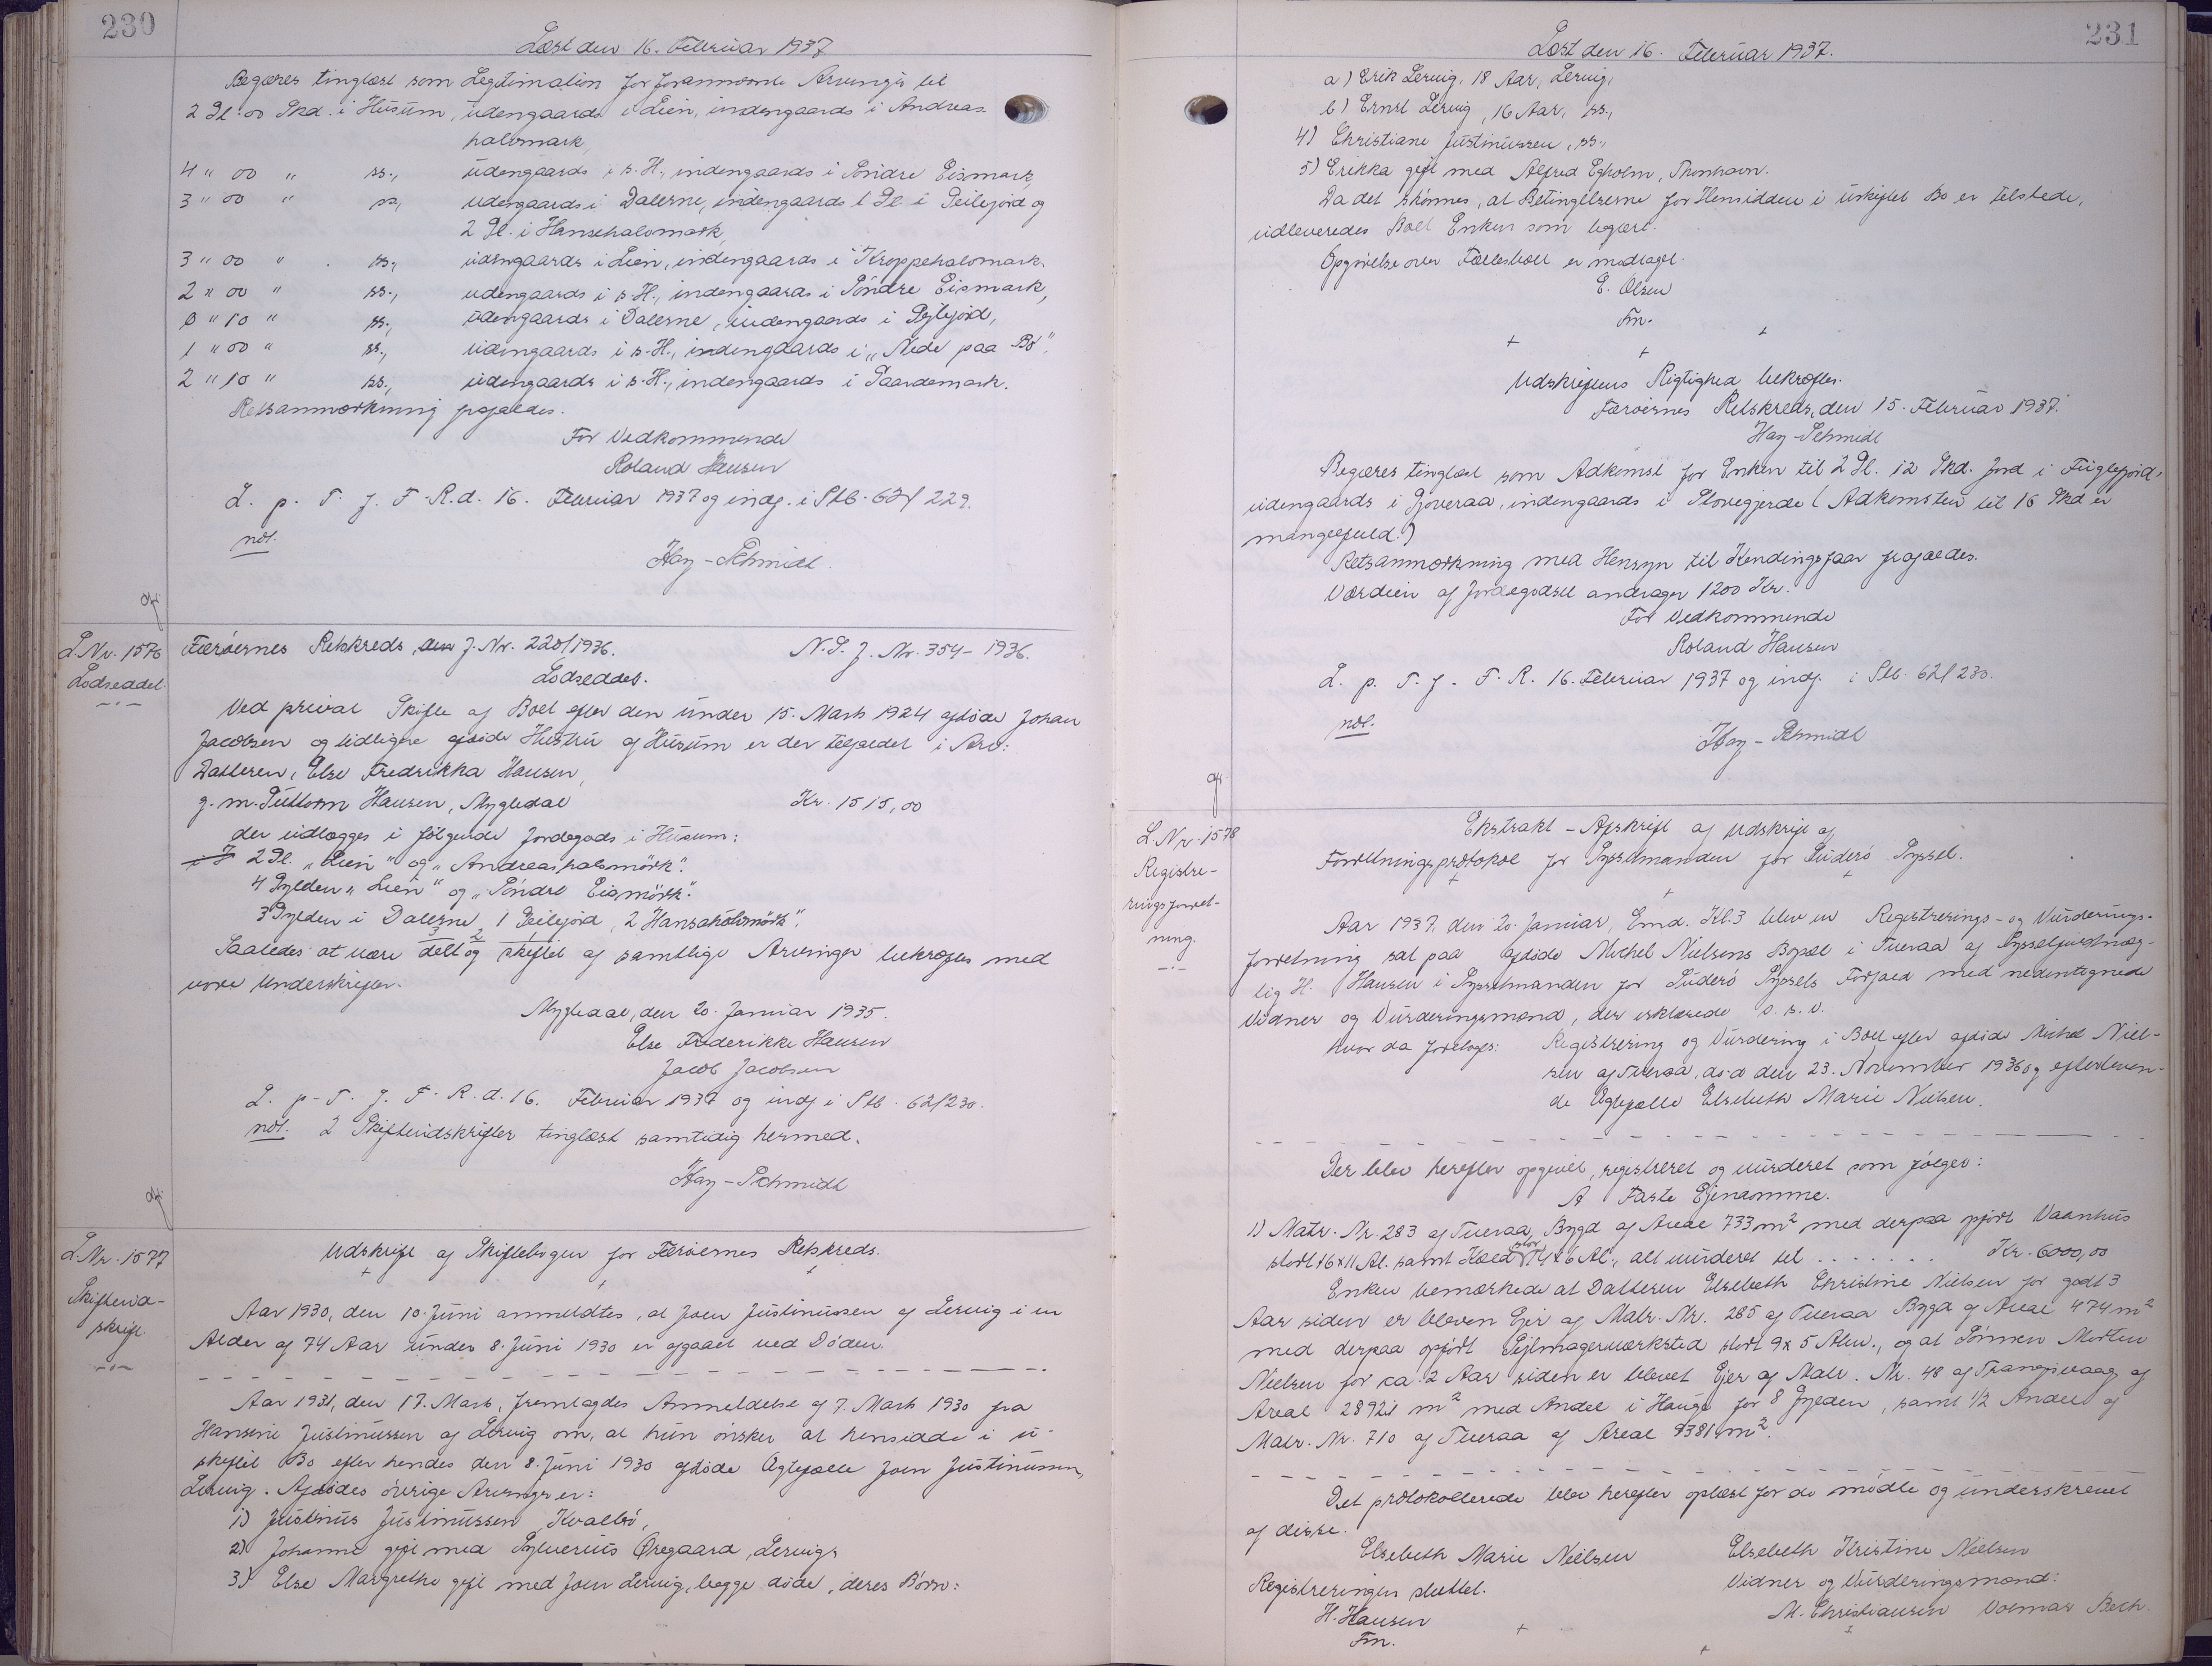 230
Læst den 16. Februar 1937
Begæres tinglæst som Legitimation for forannævnte Arvinger til
2 Gl. 00 Skd. i Húsum, udengaards i Lien, indengaards i Andreas-
halvmark,
4 " 00 " ss., udengaards i s. H., indengaards i Söndre Eismark,
3 " 00 " ss., udengaards i Dalerne, indengaards 1 Gl. i Peilejord og
2 Gl. i Hansehalvmark,
3 " 00 " ss., udengaards i Lien, indengaards i Kroppehalvmark,
2 " 00 " ss., udengaards i s. H., indengaards i Söndre Eismark,
0 " 10 " ss., udengaards i Dalerne, indengaards i Pejlejord,
1 " 00 " ss., udengaards i s. H., indengaards i "Nede paa Bö",
2 " 10 " ss., udengaards i s. H., indengaards i Gaardemark.
Retsanmærkning frafaldes.
For Vedkommende
Roland Hansen
L. p. T. f. F. R. d. 16. Februar 1937 og indf. i Stb. 62/229.
ndl.
Hay-Schmidt
L. Nr. 1576
Lodseddel.
Færöernes Retskreds, den J. Nr. 220/1936. N. S. J. Nr. 354-1936.
Lodseddel.
Ved privat Skifte af Boet efter den under 15. Marts 1924 afdöde Johan
Jacobsen og tidligere afdöde Hustru af Húsum er der tilfaldet i Arv:
Datteren, Else Fredrikka Hansen,
g. m. Guttorm Hansen, Mygledal Kr. 1515,00
der udlægges i fölgende Jordegods i Húsum:
2 Gl. "Lien" og "Andreashalvmörk".
4 Gylden "Lien" og "Söndre Eismörk".
3 Gylden i Dalerne, 1 Peilejord, 2 Hansahálvmörk".
Saaledes at være delt og skiftet af samtlige Arvinger bekræftes med
vore Underskrifter.
Mygledal, den 20. Januar 1935.
Else Frederikke Hansen
Jacob Jacobsen
L. p. T. f. F. R. d. 16. Februar 1937 og indf. i Stb. 62/230.
ndl. 2 Skifteudskrifter tinglæst samtidig hermed.
Hay-Schmidt
L. Nr. 1577
Skifteud-
skrift.
Udskrift af Skiftebogen for Færöernes Retskreds.
Aar 1930, den 10. Juni anmeldtes, at Joen Justinussen af Lervig i en
Alder af 74 Aar under 8. Juni 1930 er afgaaet ved Döden.
Aar 1931, den 17. Marts, fremlagdes Anmeldelse af 7. Marts 1930 fra
Hansine Justinussen af Lervig om, at hun önsker at hensidde i u-
skiftet Bo efter hendes den 8. Juni 1930 afdöde Ægtefælle Joen Justinussen,
Lervig. Afdödes övrige Arvinger er:
1) Justinus Justinussen, Kvalbö,
2) Johanne gift med Sylverius Öregaard, Lervig,
3) Else Margrethe gift med Joen Lervig, begge döde, deres Börn:
231
Læst den 16. Februar 1937.
a) Erik Lervig, 18 Aar, Lervig,
b) Ernst Lervig, 16 Aar, ss.,
4) Christiane Justinussen, ss.,
5) Erikka gift med Alfred Egholm, Thorshavn.
Da det skönnes, at Betingelserne for Hensidden i uskiftet Bo er tilstede,
udleveredes Boet Enken som begært.
Opgörelse over Fællesboet er modtaget.
E. Olsen
Fm.
Udskriftens Rigtighed bekræftes.
Færöernes Retskreds, den 15. Februar 1937.
Hay-Schmidt
Begæres tinglæst som Adkomst for Enken til 2 Gl. 12 Skd. Jord i Fuglefjord,
udengaards i Gjoveraa, indengaards i Plovegjerde (Adkomsten til 16 Skd er
mangelfuld.)
Retsanmærkning med Hensyn til Kendingsfaar frafaldes.
Værdien af Jordegodset andrager 1200 Kr.
For Vedkommende
Roland Hansen
L. p. T. f. F. R. 16. Februar 1937 og indf. i Stb. 62/230.
ndl.
Hay-Schmidt
L. Nr. 1578
Registre-
ringsforret-
ning.
Ekstrakt-Afskrift af Udskrift af
Forretningsprotokol for Sysselmanden for Suderö Syssel.
Aar 1937, den 20. Januar, Emd. Kl. 3 blev en Registrerings- og Vurderings-
forretning sat paa afdöde Michel Nielsens Bopæl i Tveraa af Sysselfuldmæg-
tig H. Hansen i Sysselmanden for Suderö Syssels Forfald med nedentegnede
Vidner og Vurderingsmænd, der erklærede s. s. v.
Hvor da foretoges: Registrering og Vurdering i Boet efter afdöde Michel Niel-
sen af Tveraa, död den 23. November 1936 og efterleven-
de Ægtefælle Elsebeth Marie Nielsen.
Der blev herefter opgivet, registreret og vurderet som fölger:
A Faste Ejendomme.
1) Matr. Nr. 283 af Tveraa Bygd af Areal 733 m² med derpaa opfört Vaanhus
stort 16 x 11 Al. samt Hæld stor 14 x 6 Al., alt vurderet til . . . . . . Kr. 6000,00
Enken bemærkede at Datteren Elsebeth Christine Nielsen for godt 3
Aar siden er bleven Ejer af Matr. Nr. 285 af Tveraa Bygd af Areal 474 m²
med derpaa opfört Sejlmagerværksted stort 9 x 5 Alen., og at Sönnen Morten
Nielsen for ca. 2 Aar siden er blevet Ejer af Matr. Nr. 48 af Trangisvaag af
Areal 28921 m² med Andel i Hauge for 8 Gylden, samt 1/2 Andel af
Matr. Nr. 710 af Tveraa af Areal 9381 m².
Det protokollerede blev herefter oplæst for de mödte og underskrevet
af disse.
Elsebeth Marie Nielsen Elsebeth Kristine Nielsen
Registreringen sluttet. Vidner og Vurderingsmænd:
H. Hansen M. Christiansen Volmar Bech.
Fm.